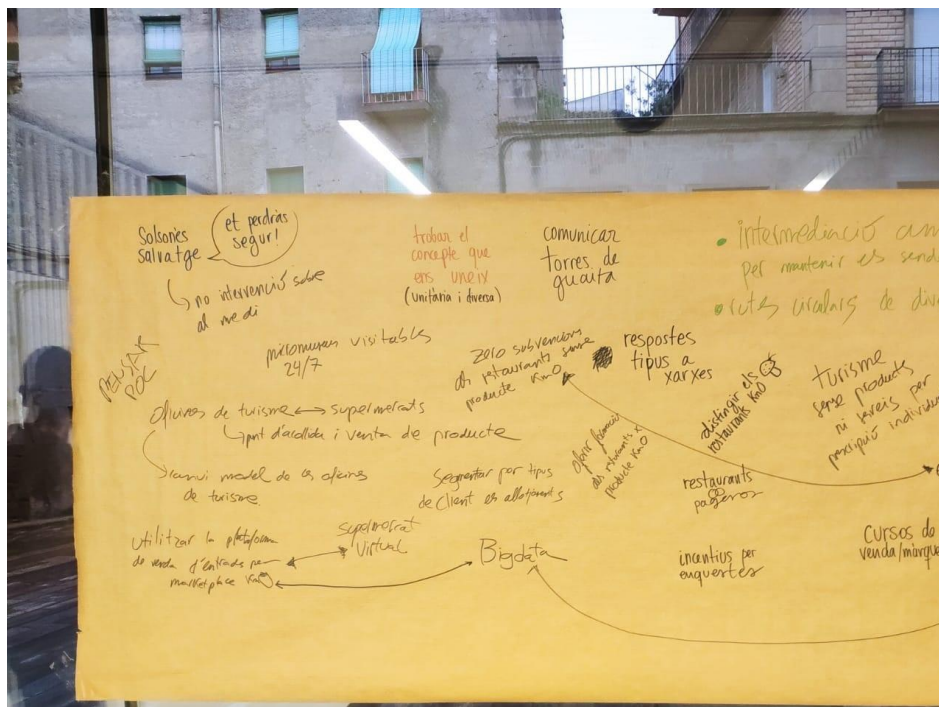 Solsonès
salvatge
et perdràs
segur!
no intervenció sobre
al medi
trobar el
concepte que
ens uneix
(unitària i diversa)
comunicar
torres de
guaita
• intermediació
per mantenir els
• rutes circulars de
PENSAR
POC
micromuseus visitables
24/7
zero subvencions
als restaurants sense
producte Km0
respostes
tipus a
xarxes
distingir els
restaurants Km0
turisme
sense products
ni serveis per
prescripció
Oficines de turisme ↔ supermercats
punt d'acollida i venta de producte
als restaurants x
producte Km0
canvi model de les oficines
de turisme
Segmentar por tipus
de client es allotjaments
restaurants
pageros
utilitzar la plataforma
de venda d'entrades per
marketplace Km0
supermercat
virtual
Bigdata
incentius per
enquestes
Cursos de
venda/